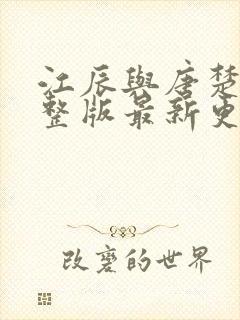 江辰與唐楚
整版最新更
改變的世界